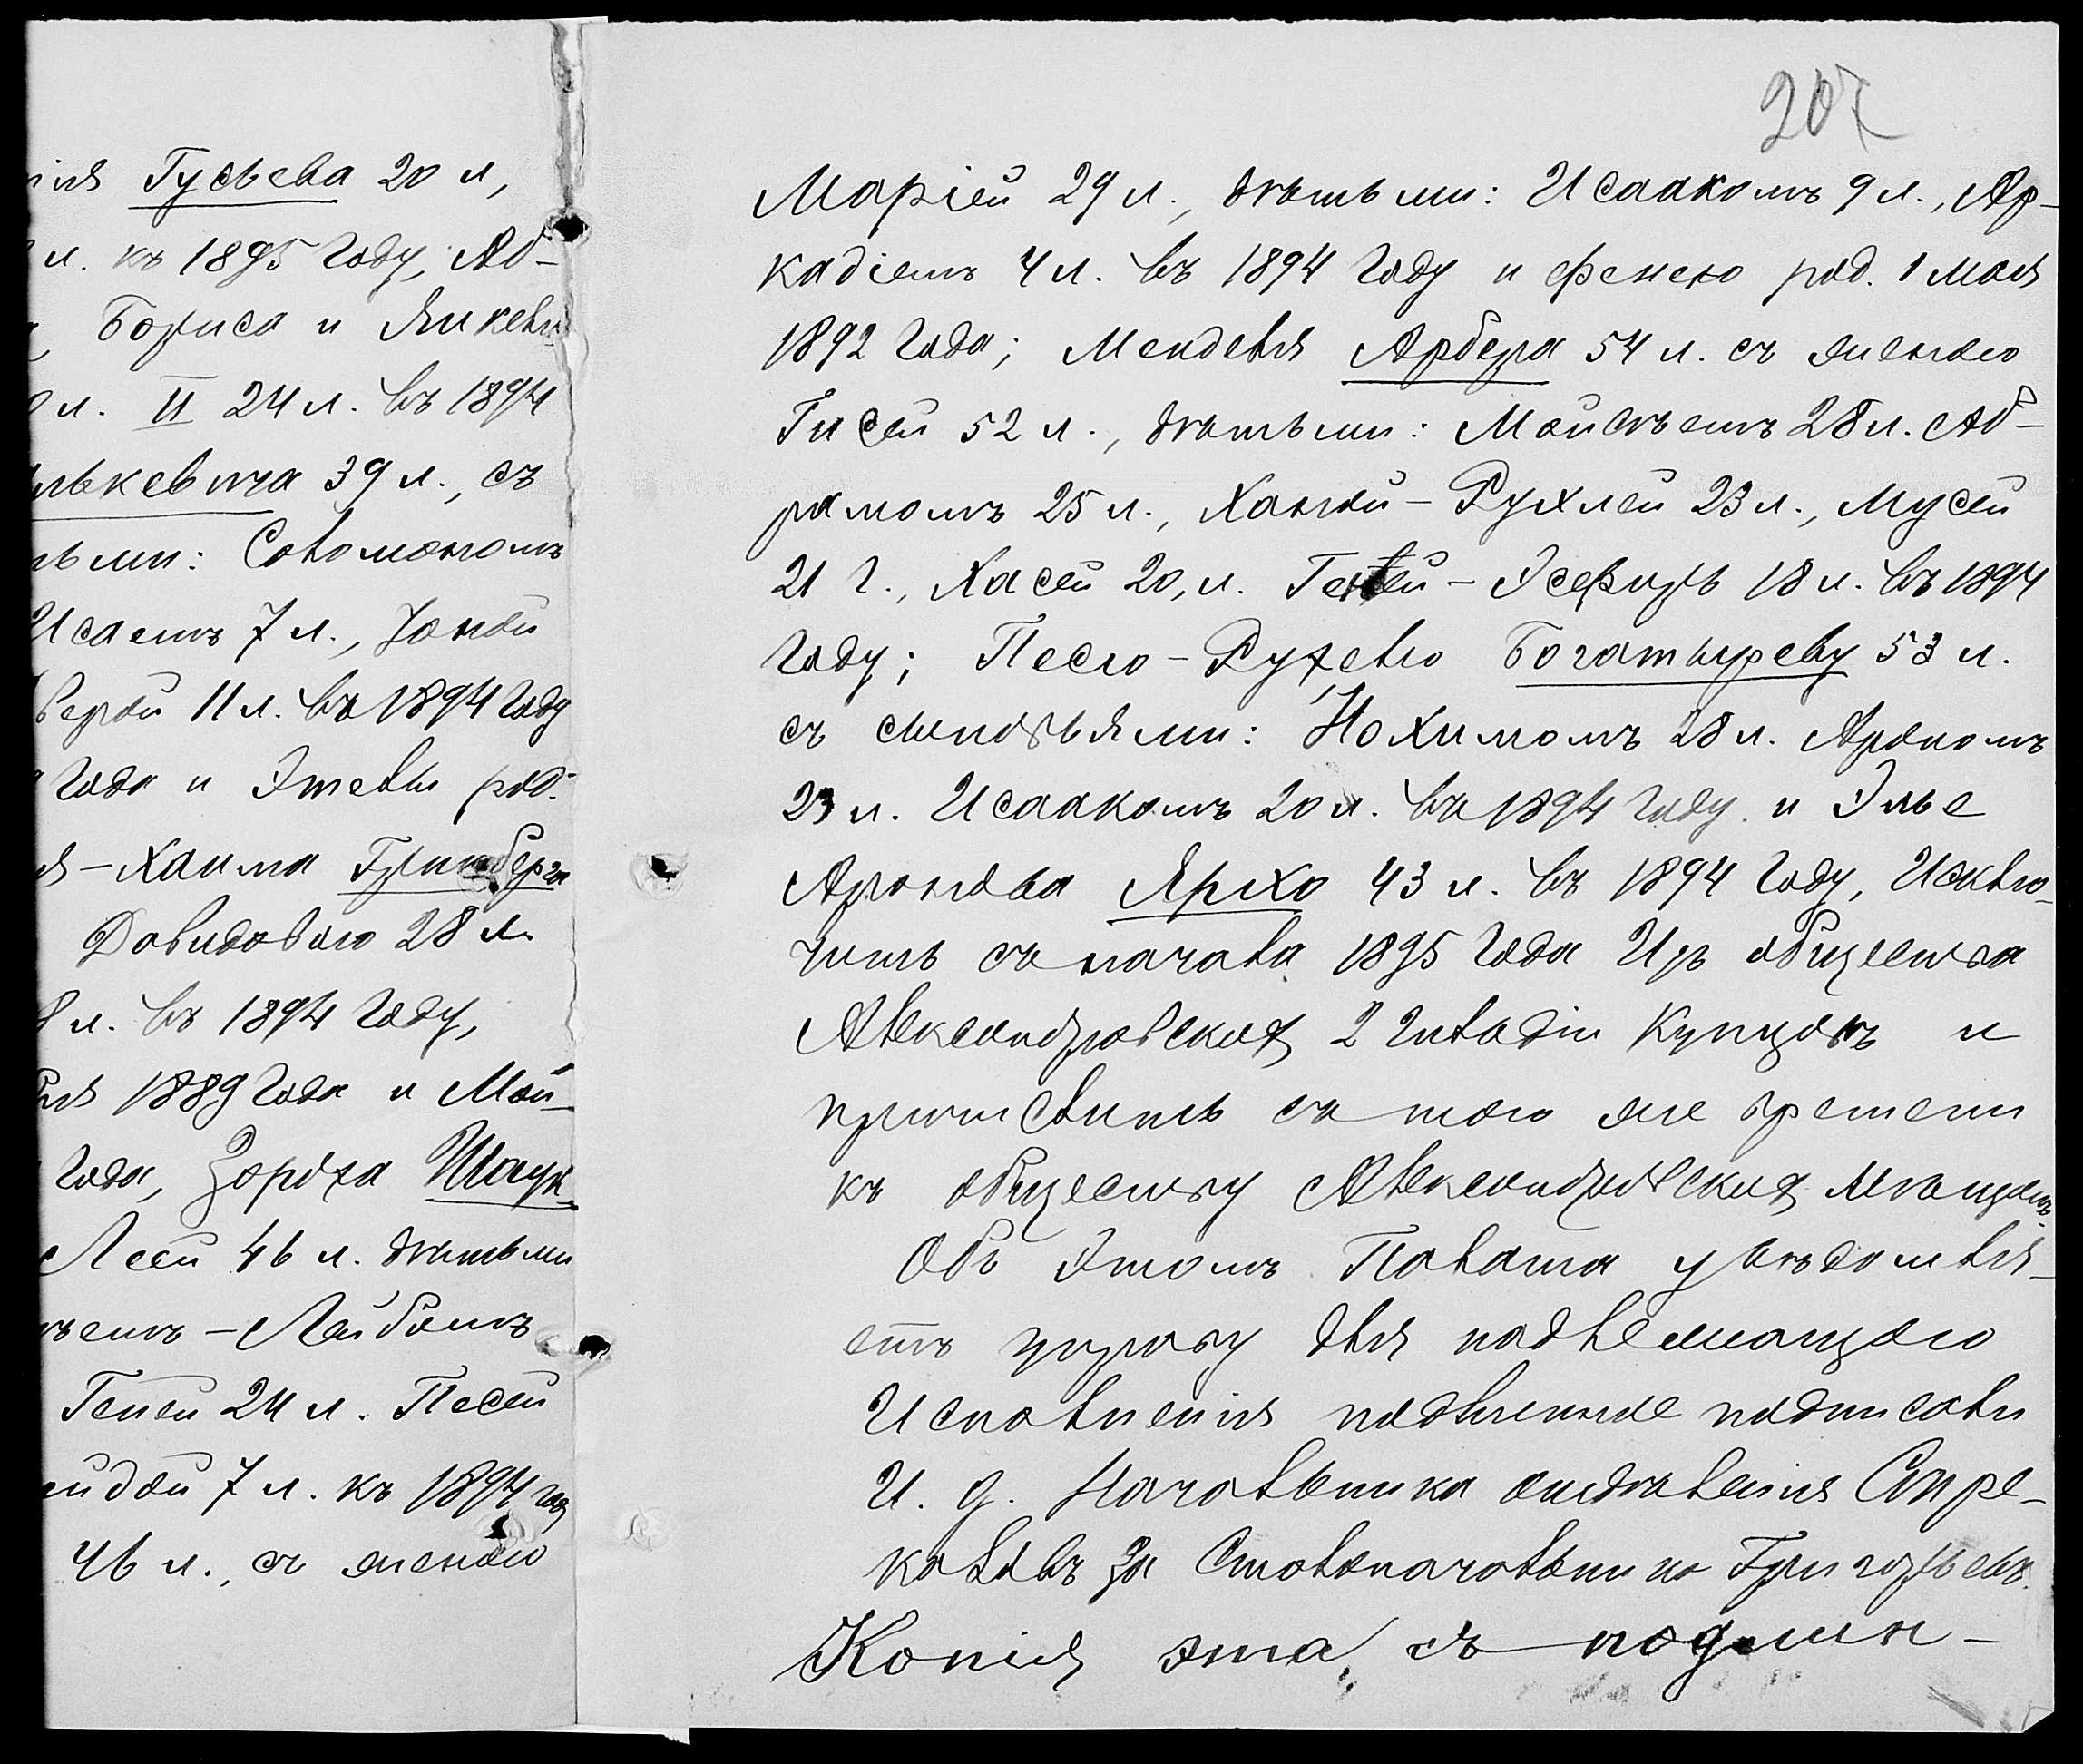 207
нія Гусьева 20 л,
л. къ 1895 году, Аб-
Бориса и Янкеля
л. II 24 л. въ 1894
лькевича 39 л., съ
тьми: Соломономъ
Исаемъ 7 л., Зоней
Верой 11 л. въ 1894 году
года и Этели род.
я-Хаима Гринберга
Давидовою 28 л.
8 л. въ 1894 году,
1889 года и Мой-
года, Зораха
Леей 46 л. дѣтьми
ѣемъ-Лейбомъ
Геней 24 л. Песей
ейдой 7 л. къ 1894 год
46 л., съ женою
Маріей 29 л., дѣтьми: Исаакомъ 9 л., Ар-
кадіемъ 4 л. въ 1894 году и Фенею род. 1 мая
1892 года; Менделя Арбера 54 л. съ женою
Гисей 52 л., дѣтьми: Мойсѣемъ 28 л. Аб-
рамомъ 25 л., Ханой-Рухлей 23 л., Мусей
21 г., Хасей 20, л. Геней-Эсфирь 18 л. въ 1894
году; Песю-Рухелю Богатыреву 53 л.
съ сыновьями: Нохимомъ 28 л. Арономъ
23 л. Исаакомъ 20 л. въ 1894 году и Элье
Аронова Ярхо 43 л. въ 1894 году, Исклю-
чить съ начала 1895 года Изъ общества
Александровскихъ 2 гильдіи Купцовъ и
причислить съ того же времени
къ обществу Александровскихъ мѣщанъ.
Объ Этомъ Палата увѣдомля-
етъ управу для надлежащаго
Исполненія подлинное подписали
И. д. Начальника отдѣленія Стре-
каловъ За Столоначальника Григорьевъ.
Копія эта съ подлин-